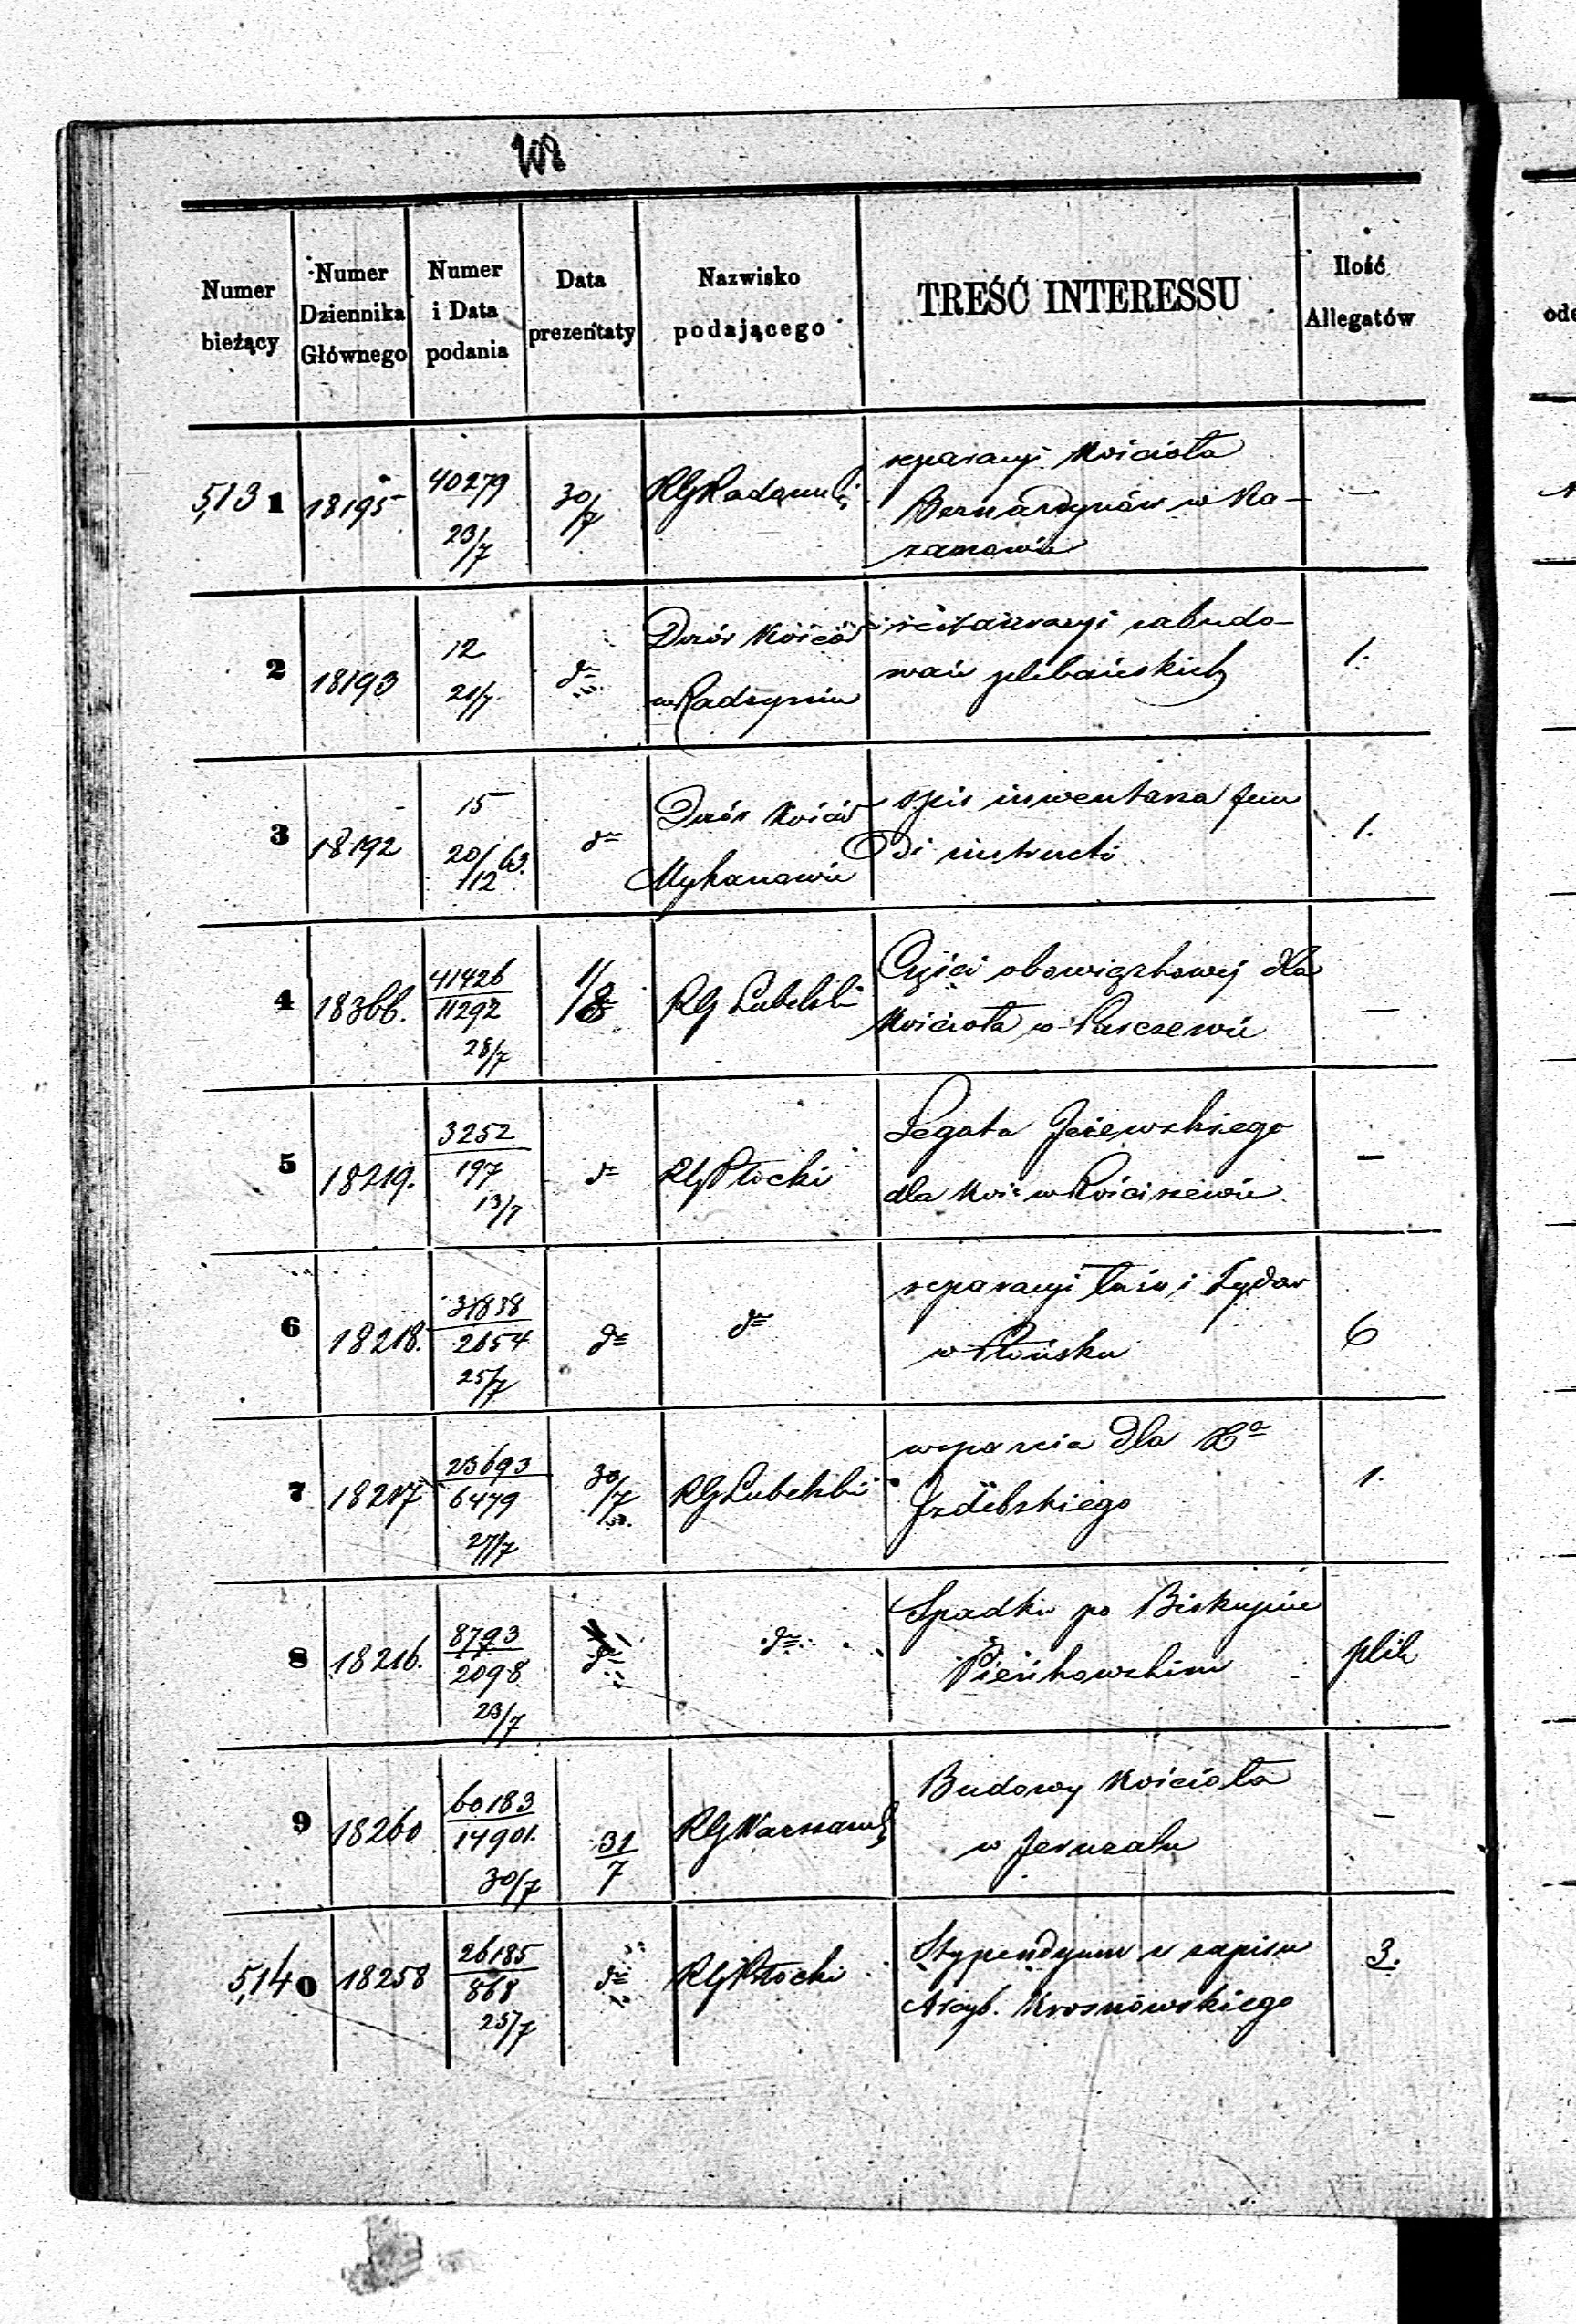 208
Numer bieżący
Numer Dziennika Głównego
Numer i Data podania
Data prezentaty
Nazwisko podającego
TREŚĆ INTERESSU
Ilość Allegatów
5,131 18195 40279 23/7 30/7 RG Radomski reparacyi Kościoła
Bernardynów w Ka-
zanowie —
2 18193 12 21/7 do Dozór Kośció restauracyi zabudo-
w Radzyminie wań plebańskich 1.
3 18192 15 20/12 63. do Dozór Kośció spis inwentarza fun
Mykanowie di instructi 1.
4 18366. 41426/11292 28/7 1/8 RG Lubelski Części obowiązkowej dla
Kościoła w Parczewie —
5 18219. 3252/197 13/7 do RG Płocki Legata Jeżewskiego
dla Koś: w Rościszewie —
6 18218. 31838/2654 25/7 do do reparacyi
w Płońsku 6
7 18217 23693/6479 27/7 30/7 RG Lubelski wsparcia dla Xa
Izdebskiego 1.
8 18216. 8793/2098 23/7 do do Spadku po Biskupie
Pieńkowskim plik
9 18260 60183/14901. 30/7 31/7 RG Warszawski Budowy Kościoła
w Jeruzalu —
5,140 18258 26185/868 25/7 do RG Płocki Stypendyum z zapisu
Arcyb. Krosnowskiego 3.